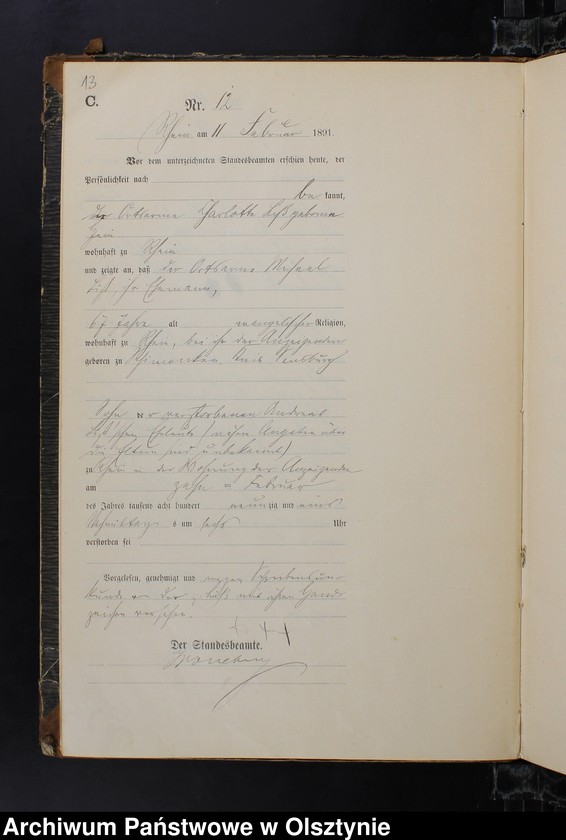 13
C.
Nr. 12
Rhein am 11 Februar 1891.
Vor dem unterzeichneten Standesbeamten erschien heute, der
Persönlichkeit nach
bekannt,
Ortsarme Charlotte geborene
wohnhaft zu Rhein
und zeigte an, daß der Ortsarme Michael
ihr Ehemann,
67 Jahre alt evangelischer Religion,
wohnhaft zu Rhein, bei ihr der Anzeigenden
geboren zu Kreis Sensburg
Sohn der verstorbenen Andreas
Eheleute (nähere Angaben über
die Eltern sind unbekannt)
zu Rhein in der Wohnung der Anzeigenden
am zehn Februar
des Jahres tausend acht hundert neunzig und eins
Nachmittags um sechs Uhr
verstorben sei
Vorgelesen, genehmigt und wegen Schreibensun-
kunde von der mit ihrem Hand-
zeichen versehen.
+++
Der Standesbeamte.
Archiwum Państwowe w Olsztynie